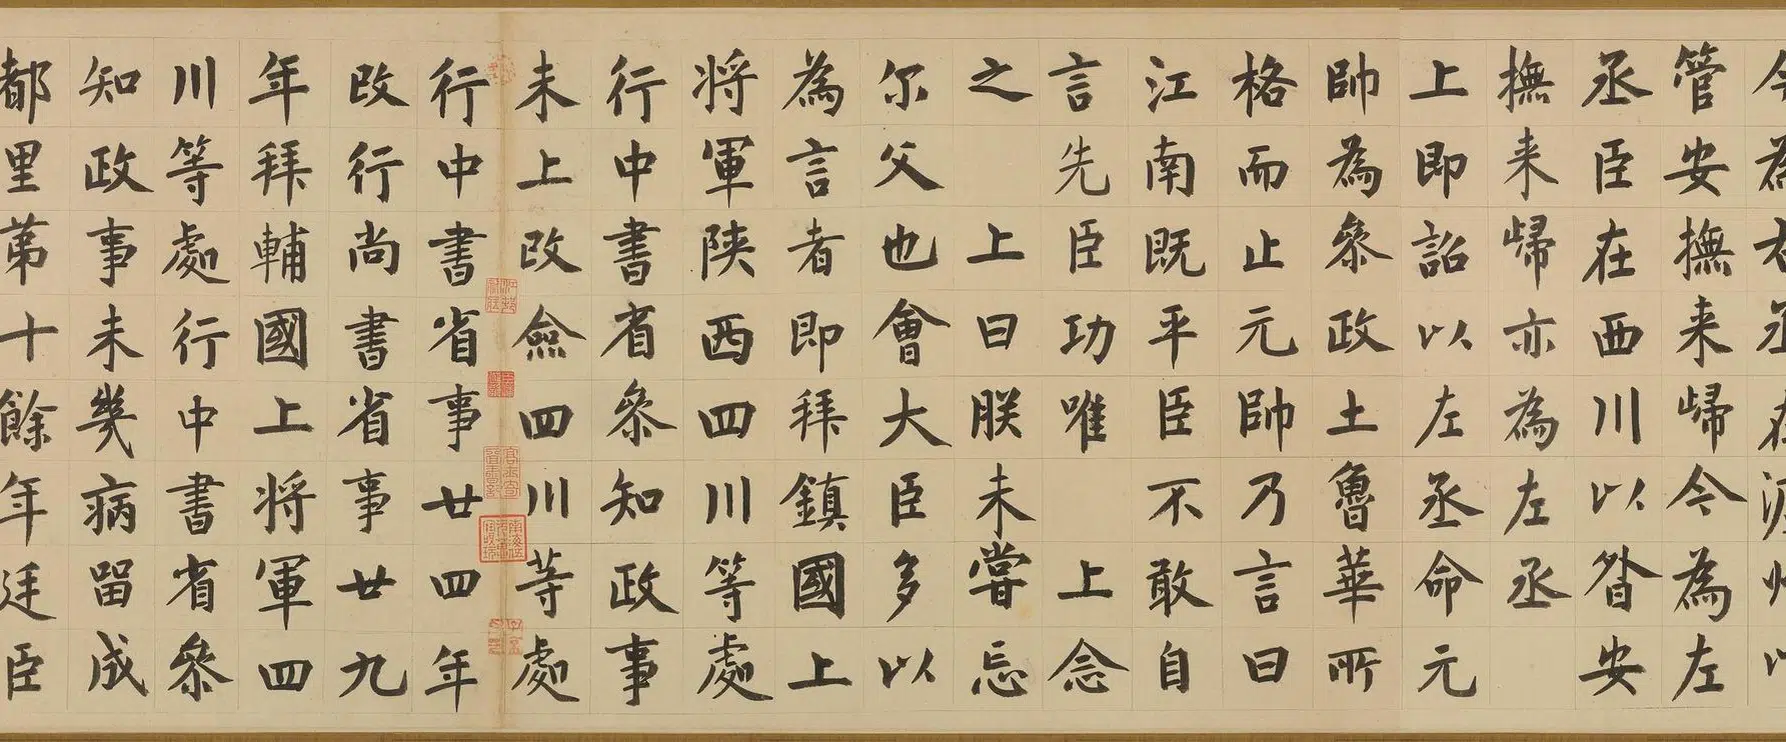 管安撫来歸今為左
丞臣在西川以昝安
撫来歸亦為左丞
上即詔以左丞命元
帥為叅政土魯華所
格而止元帥乃言曰
江南既平臣不敢自
言先臣功唯 上念
之 上曰朕未嘗忘
尔父也會大臣多以
為言者即拜鎮國上
将軍陝西四川等處
行中書省叅知政事
未上改僉四川等處
行中書省事廿四年
改行尚書省事廿九
年拜輔國上将軍四
川等處行中書省叅
知政事未幾病留成
都里苐十餘年廷臣